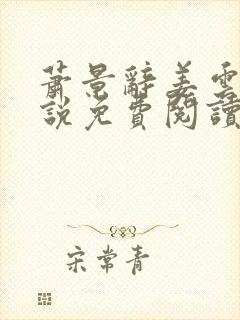 蕭景辭姜雲
說免費閱讀
宋常青